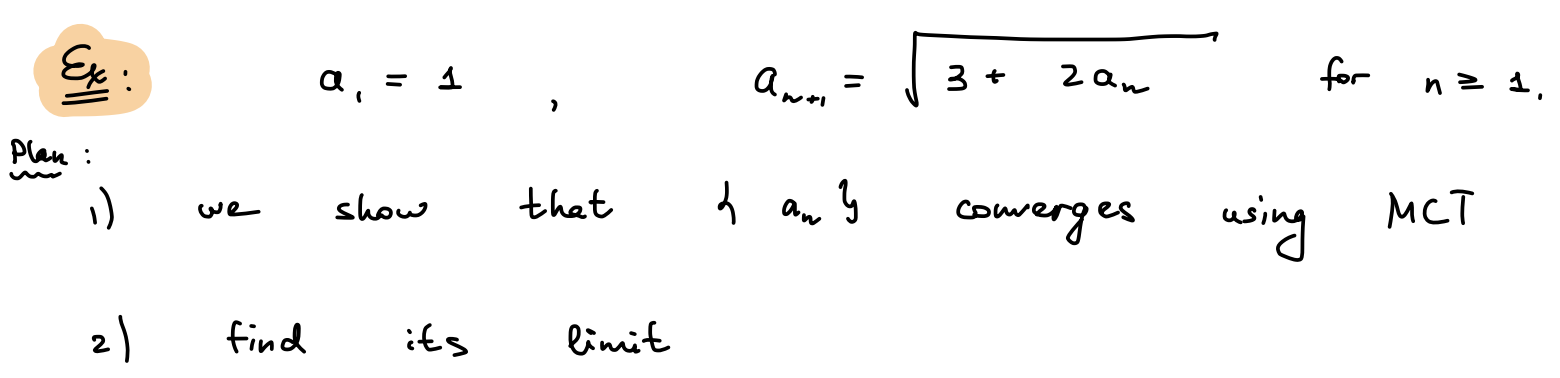 Ex: a₁ = 1 , aₙ₊₁ = √(3 + 2aₙ) for n ≥ 1.
Plan:
1) we show that { aₙ } converges using MCT
2) find its limit